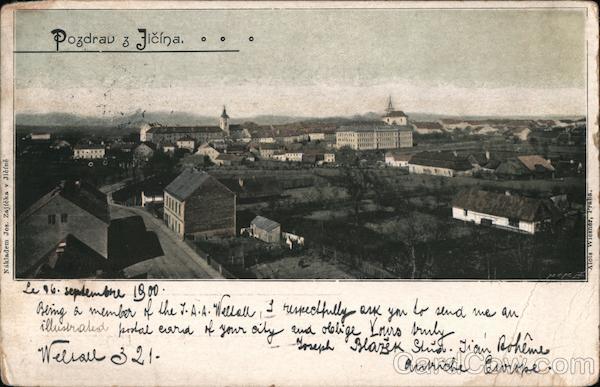 Pozdrav z Jičína.
Nákladem Jos. Zajíčka v Jičíně
Alois Wiesner, Praha.
Le 26. septembre 1900.
Being a member of the I.A.A. Weltall, I respectfully ask you to send me an
illustrated postal card of your city and oblige Yours truly
Joseph Blažek Stud. Jičín Bohême
Weltall 321.
Autriche Europe.
CardCow.com